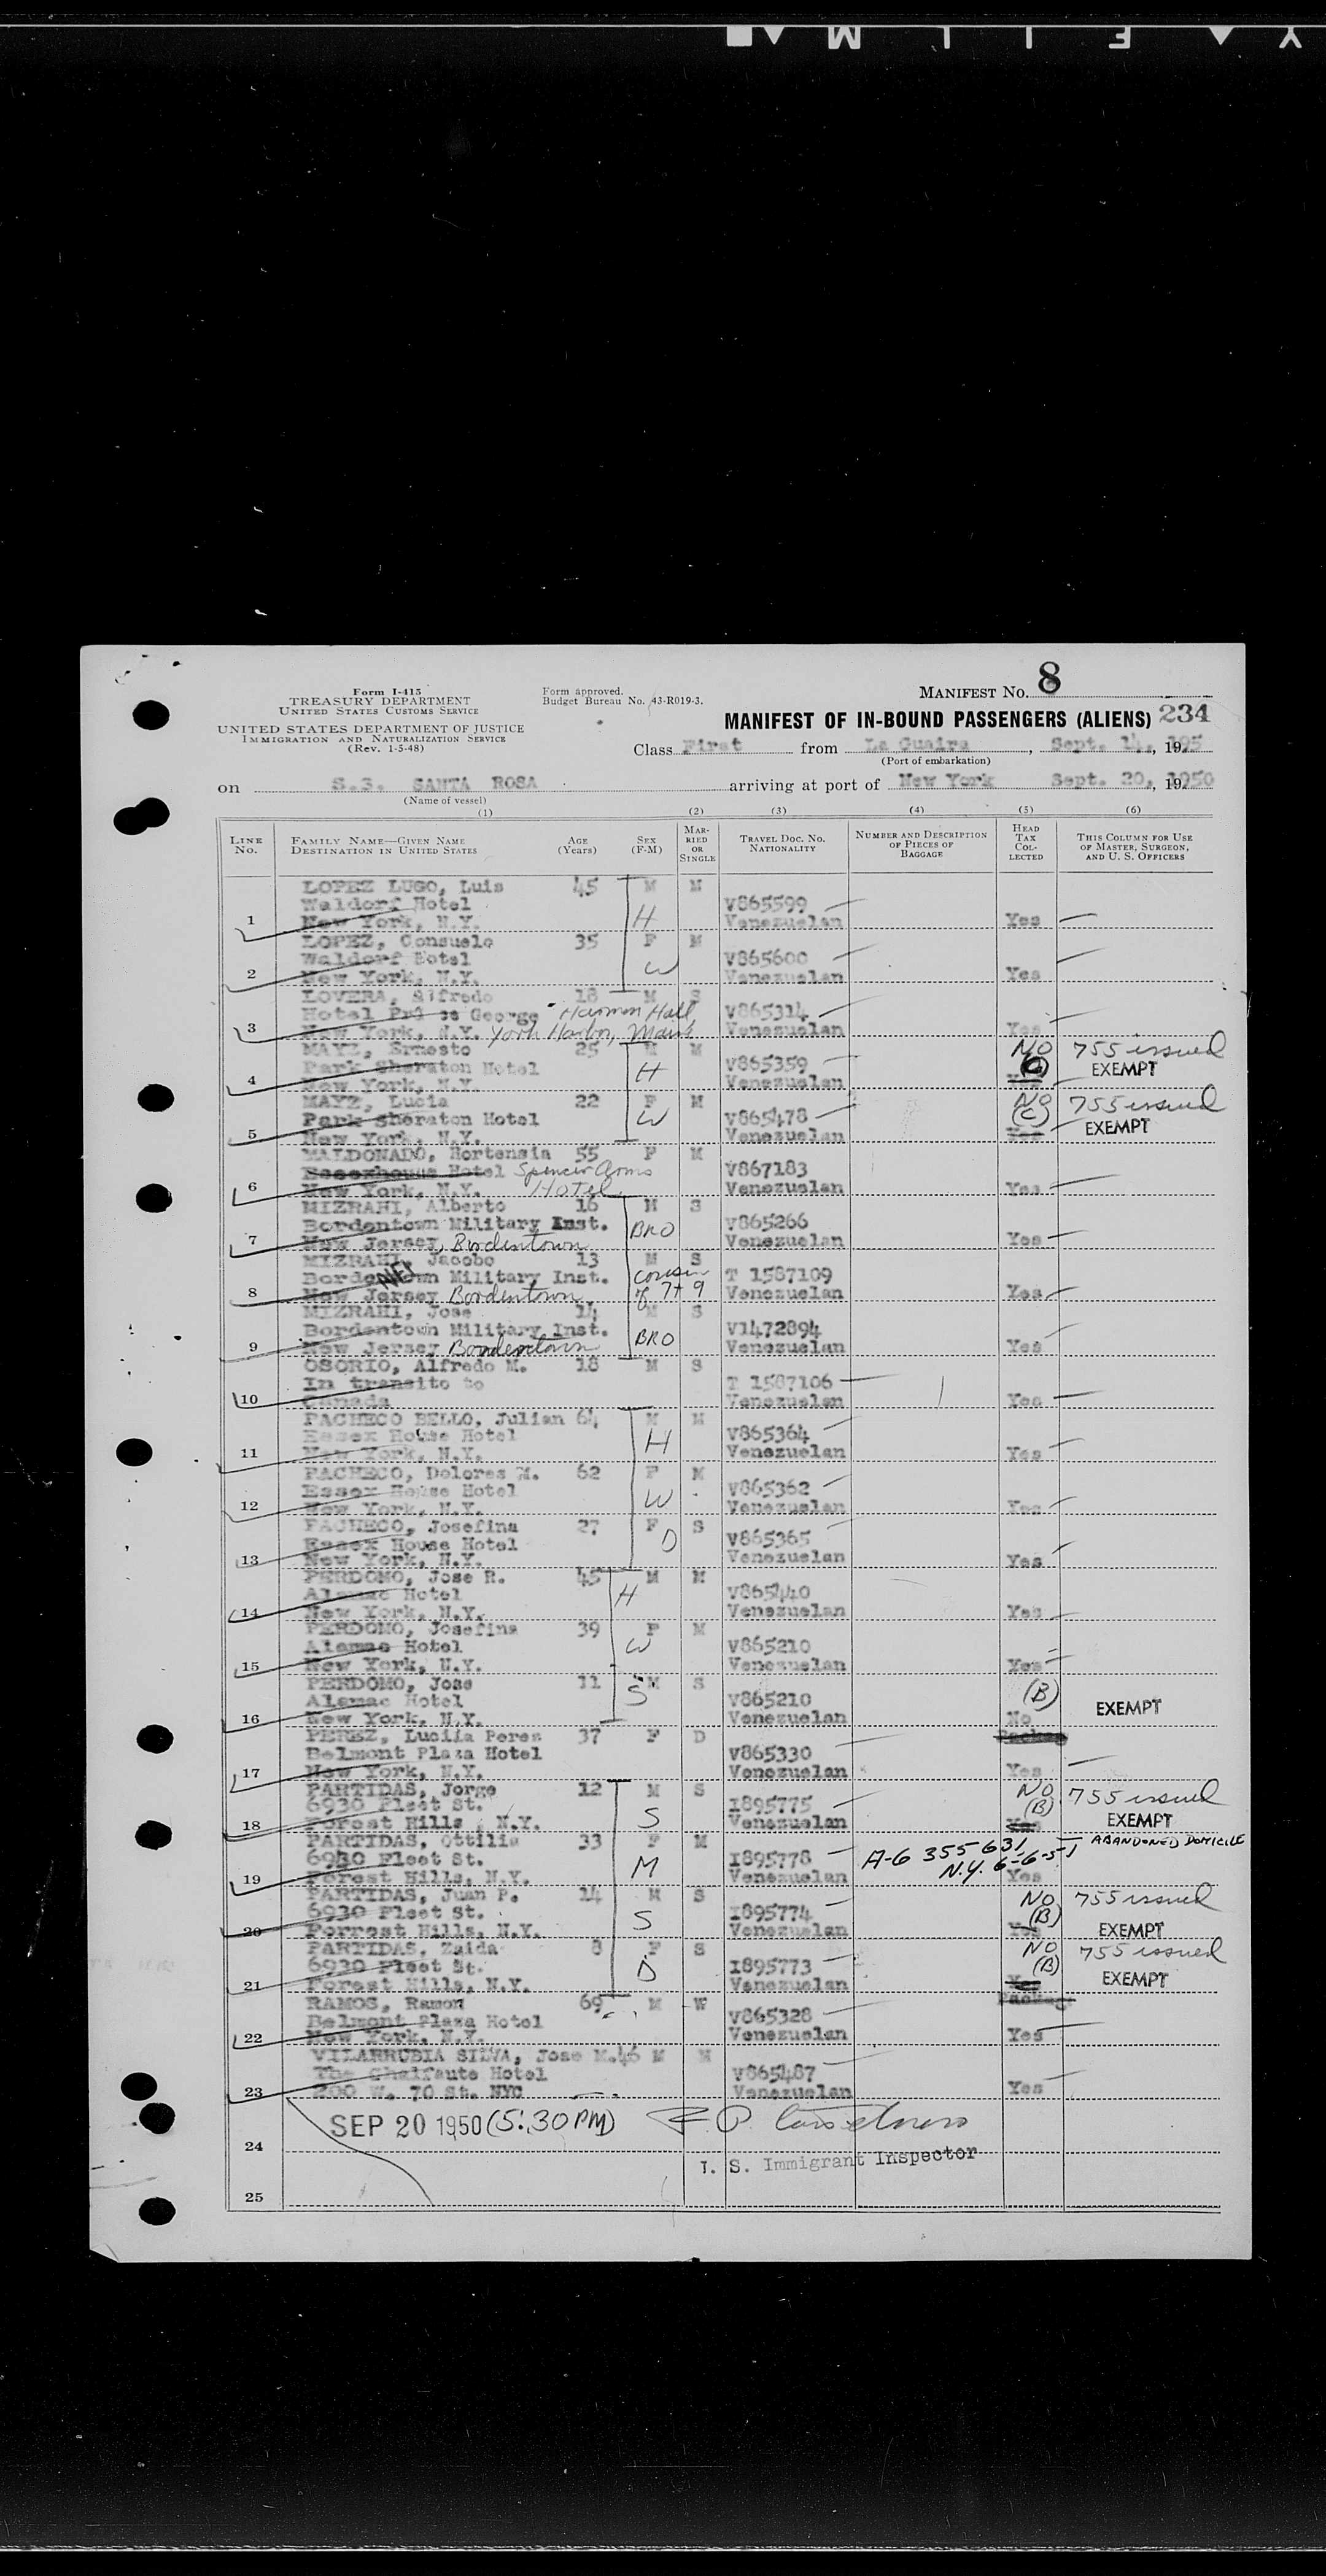 Y ▲ F I L M ▲ ■
Form I-415
TREASURY DEPARTMENT
UNITED STATES CUSTOMS SERVICE
UNITED STATES DEPARTMENT OF JUSTICE
IMMIGRATION AND NATURALIZATION SERVICE
(Rev. 1-5-48)
Form approved.
Budget Bureau No. 43-R019-3.
MANIFEST No. 8
MANIFEST OF IN-BOUND PASSENGERS (ALIENS) 234
Class First from La Guaira, Sept. 14, 195
(Port of embarkation)
on S.S. SANTA ROSA arriving at port of New York Sept. 20, 1950
(Name of vessel)
(1) (2) (3) (4) (5) (6)
LINE No. FAMILY NAME—GIVEN NAME DESTINATION IN UNITED STATES AGE (Years) SEX (F-M) MARRIED OR SINGLE TRAVEL DOC. No. NATIONALITY NUMBER AND DESCRIPTION OF PIECES OF BAGGAGE HEAD TAX COLLECTED THIS COLUMN FOR USE OF MASTER, SURGEON, AND U. S. OFFICERS
LOPEZ LUGO, Luis 45 M M
Waldorf Hotel V865599
1 New York, N.Y. H Venezuelan Yes
LOPEZ, Consuelo 35 F M
Waldorf Hotel V865600
2 New York, N.Y. W Venezuelan Yes
LOVERA, Alfredo 18 M S
Hotel George Harmon Hall, V865314
3 New York, N.Y. York Harbor, Venezuelan Yes
MAYZ, Ernesto 25 M M NO 755 issued
Park Sheraton Hotel H V865359 EXEMPT
4 New York, N.Y. Venezuelan
MAYZ, Lucia 22 F M NO 755 issued
Park Sheraton Hotel W V865478 (C) EXEMPT
5 New York, N.Y. Venezuelan Yes
MALDONADO, Hortensia 55 F M
Essexhouse Hotel Spencer Arms V867183
6 New York, N.Y. HOTEL Venezuelan Yes
MIZRAHI, Alberto 16 M S
Bordentown Military Inst. BRO V865266
7 New Jersey, Bordentown Venezuelan Yes
MIZRAHI, Jacobo 13 M S
Bordentown Military Inst. cousin T 1587109
8 New Jersey Bordentown of 7+9 Venezuelan Yes
MIZRAHI, Jose 14 M S
Bordentown Military Inst. BRO V1472894
9 New Jersey Bordentown Venezuelan Yes
OSORIO, Alfredo M. 18 M S
In transito to T 1587106
10 Canada Venezuelan Yes
PACHECO BELLO, Julian 64 M M
Essex House Hotel H V865364
11 New York, N.Y. Venezuelan Yes
PACHECO, Dolores M. 62 F M
Essex House Hotel W V865362
12 New York, N.Y. Venezuelan Yes
PACHECO, Josefina 27 F S
Essex House Hotel D V865365
13 New York, N.Y. Venezuelan Yes
PERDOMO, Jose R. 45 M M
Alamac Hotel H V865440
14 New York, N.Y. Venezuelan Yes
PERDOMO, Josefina 39 F M
Alamac Hotel W V865210
15 New York, N.Y. Venezuelan Yes
PERDOMO, Jose 11 M S (B)
Alamac Hotel S V865210 EXEMPT
16 New York, N.Y. Venezuelan No
PEREZ, Lucila Perez 37 F D
Belmont Plaza Hotel V865330
17 New York, N.Y. Venezuelan Yes
PARTIDAS, Jorge 12 M S NO 755 issued
6930 Fleet St. S I895775 (B) EXEMPT
18 Forest Hills, N.Y. Venezuelan Yes
PARTIDAS, Ottilia 33 F M ABANDONED DOMICILE
6930 Fleet St. M I895778 A-6 355 631
19 Forest Hills, N.Y. Venezuelan N.Y. 6-6-51 Yes
PARTIDAS, Juan P. 14 M S NO 755 issued
6930 Fleet St. S I895774 (B)
20 Forrest Hills, N.Y. Venezuelan Yes EXEMPT
PARTIDAS, Zaida 8 F S NO 755 issued
6930 Fleet St. D I895773 (B) EXEMPT
21 Forest Hills, N.Y. Venezuelan Yes
RAMOS, Ramon 69 M W
Belmont Plaza Hotel V865328
22 New York, N.Y. Venezuelan Yes
VILARRUBIA SILVA, Jose M. 46 M M
The Chalfaute Hotel V865487
23 200 W. 70 St. NYC Venezuelan Yes
SEP 20 1950 (5:30 PM)
24
I. S. Immigrant Inspector
25